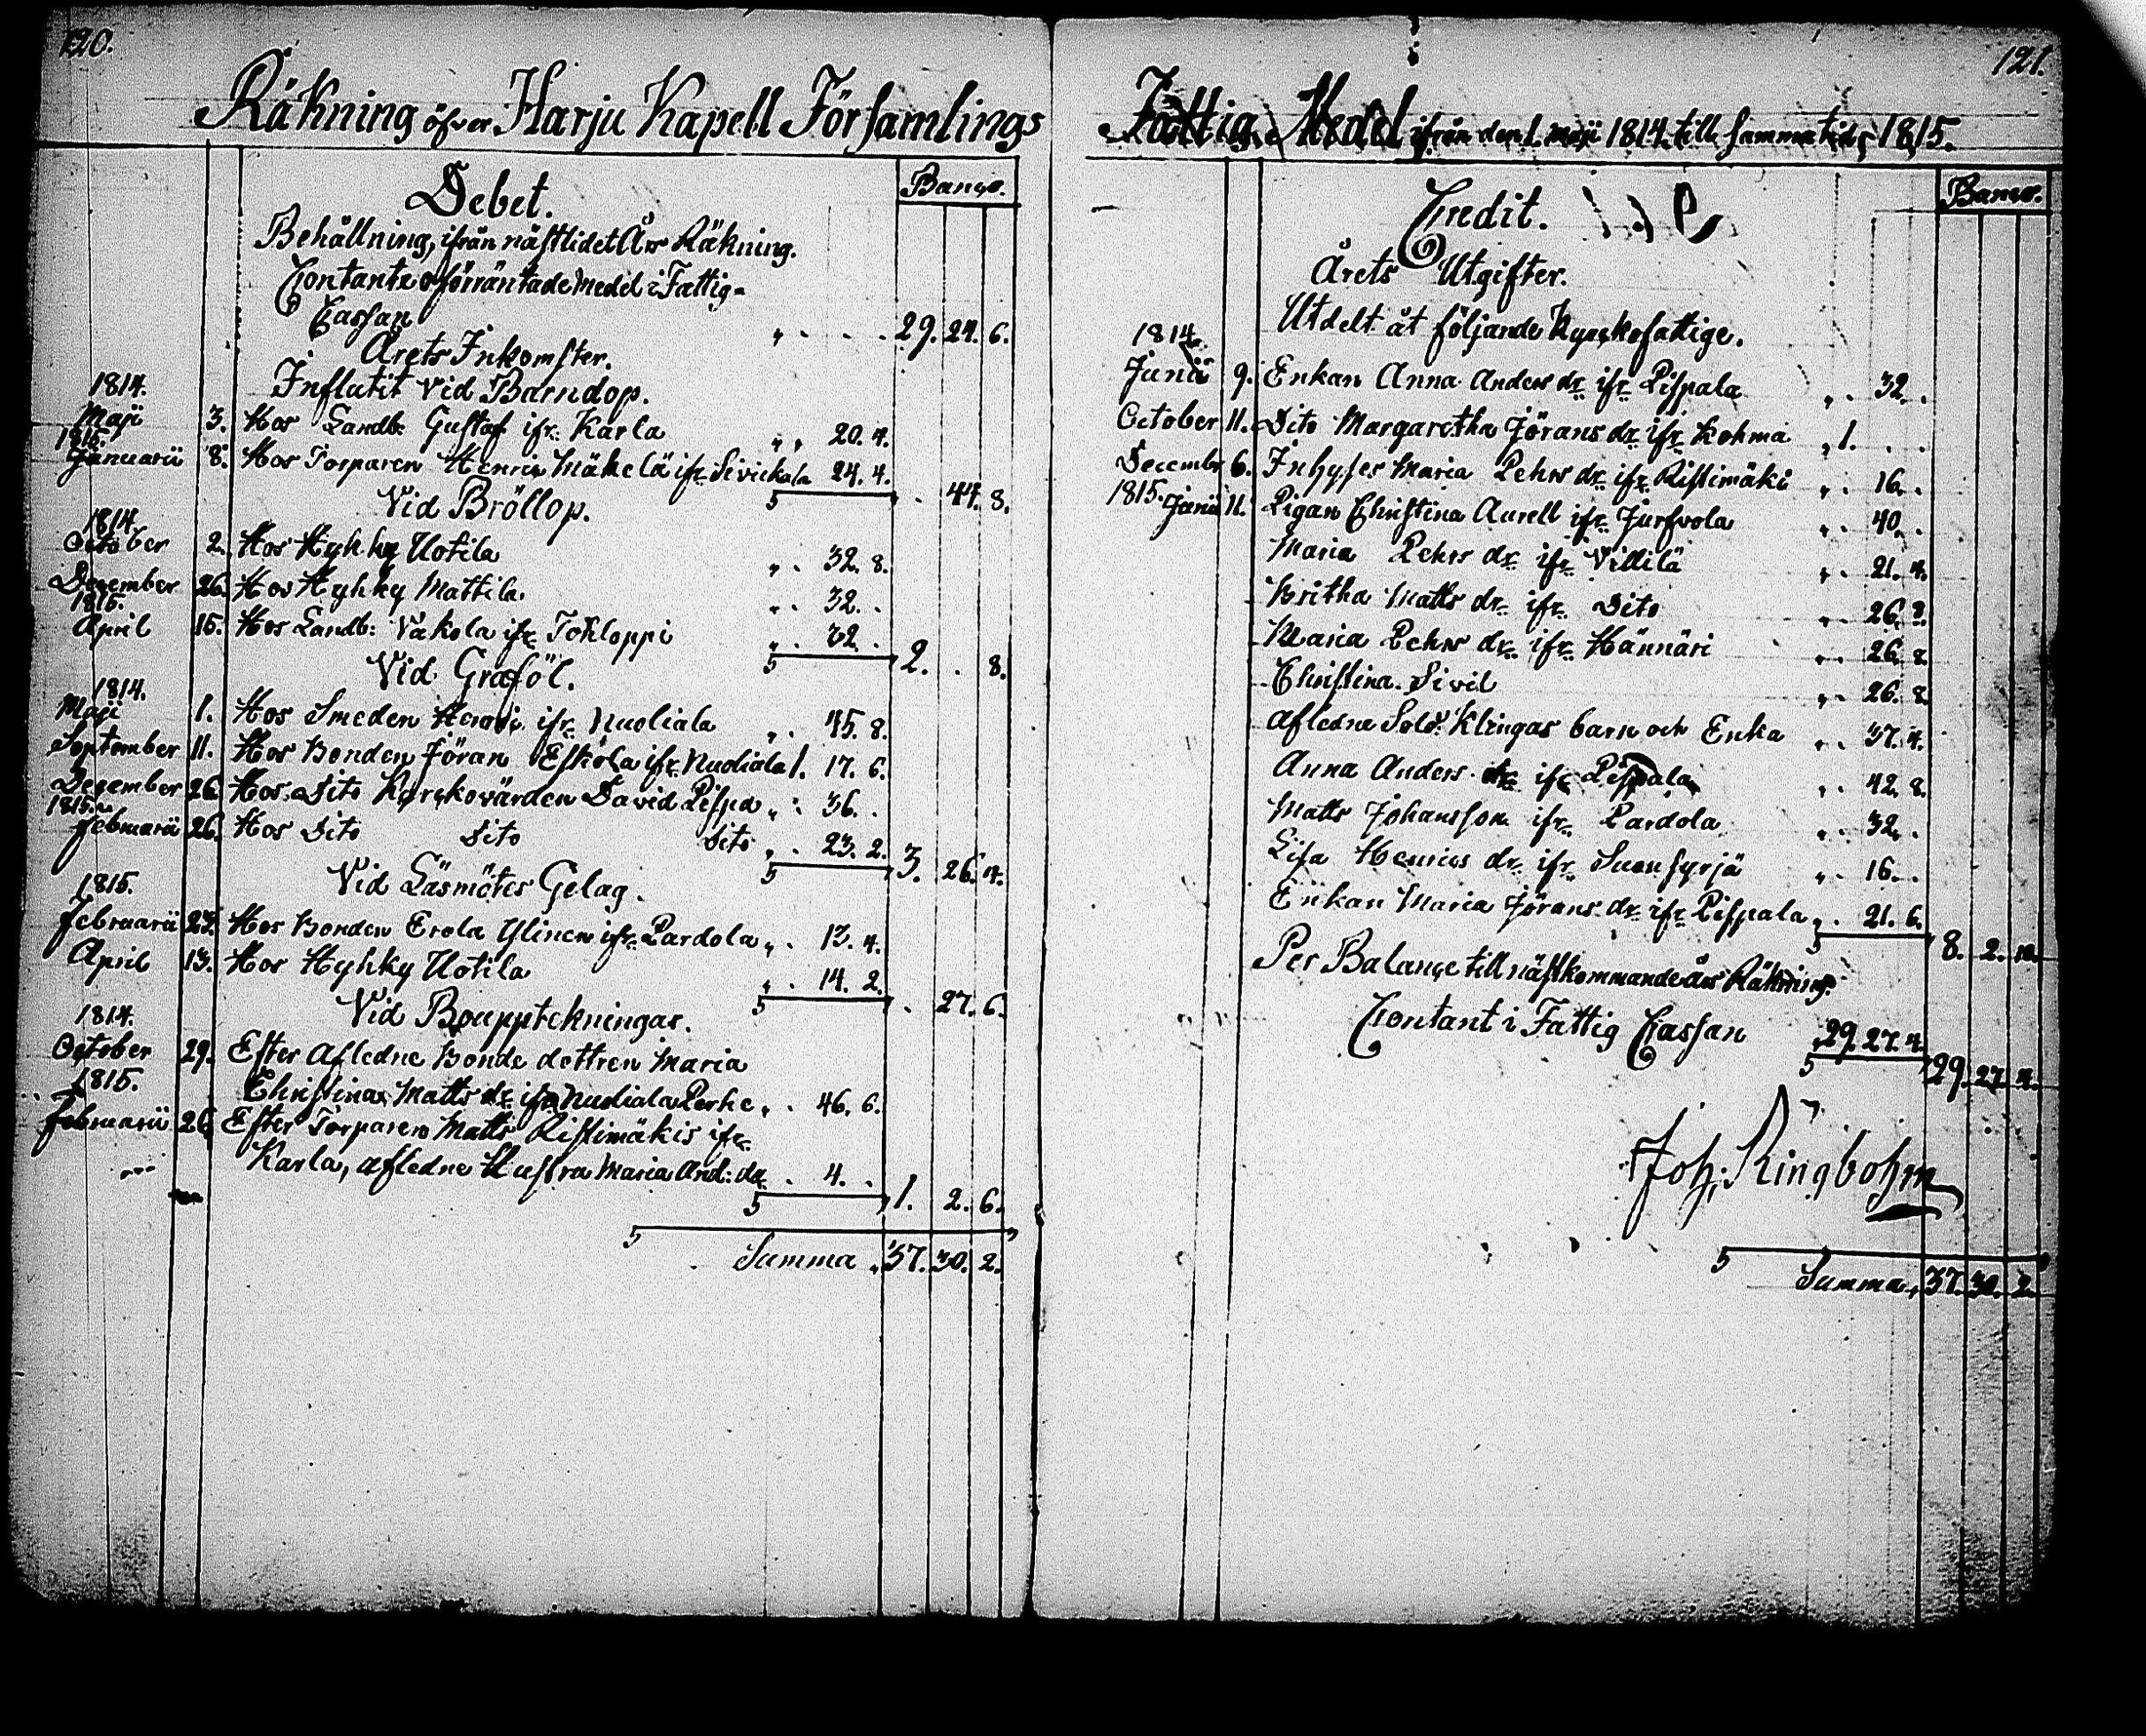 120.
Räkning öfver Harju Kapell Församlings
Debet.
Banco.
Behållning, ifrån nästlidet Års Räkning.
Contante oförräntade medel i Fattig-
Cassan " . . . . 29. 24. 6.
Årets Inkomster.
Influtit vid Barndop.
1814.
Maji 3. Hos Landb: Gustaf ifr: Karla " " 20. 4.
1815.
Januarii 8. Hos Torparen Henric Mäkelä ifr: Sivickala 24. 4.
. 44. 8.
Vid Bröllop.
1814.
October 2. Hos Hyhky Uotila " . 32. 8.
December 26. Hos Hyhky Mattila. " . 32. .
1815.
April 15. Hos Landb: Vakola ifr: Tohloppi " . 32. .
2. . 8.
Vid Graföl.
1814.
Maji 1. Hos Smeden Henric ifr: Nuoliala " . 45. 8.
September 11. Hos Bonden Jöran Eskola ifr: Nuoliala 1. 17. 6.
December 26. Hos Dito Kyrckovärden David Pispa " . 36. .
1815.
Februarii 26. Hos Dito Dito Dito " . 23. 2.
3. 26. 4.
Vid Läsmötes Gelag.
1815.
Februarii 23. Hos Bonden Erola Ylinen ifr: Pardola " . 13. 4.
April 13. Hos Hyhky Uotila " . 14. 2.
. 27. 6.
Vid Bouppteckningar.
1814.
October 29. Efter afledne Bonde dottren Maria
1815.
Christina Matts dr ifr: Nuoliala Perhe " . 46. 6.
Februarii 26. Efter Torparen Matts Ristimäkis ifr:
Karla, afledne Hustra Maria And: dr . 4. .
1. 2. 6.
Summa " 37. 30. 2.
121.
Fattig Medel ifrån den 1. maji 1814 till samma tid 1815.
Credit.
Banco.
Årets Utgifter.
Utdelt åt följande Kyrckofattige.
1814.
Junii 9. Enkan Anna Anders dr ifr: Pispala " . 32. .
October 11. Dito Margaretha Jörans dr ifr: Kohma " 1. . .
December 6. Inhyses Maria Pehrs dr ifr: Ristimäki " . 16. .
1815. Junii 11. Pigan Christina Aurell ifr: Jurfvola " . 40. .
Maria Pehrs dr ifr: Villilä " . 21. 4.
Britha Matts dr ifr: Dito " . 26. 8.
Maria Pehrs dr ifr: Hännäri " . 26. 8.
Christina Sivil " . 26. 8.
Afledne Sold: Klingas barn och Enka " . 37. 4.
Anna Anders dr ifr: Pispala " . 42. 8.
Matts Johansson ifr: Pardola " . 32. .
Lisa Henrics dr ifr: Suonsyrjä " . 16. .
Enkan Maria Jörans dr ifr: Pispala " . 21. 6.
8. 2. 10.
Per Balance till nästkommande års Räkning.
Contant i Fattig Cassan " 29. 27. 4.
29. 27. 4.
Joh: Ringbohm
Summa " 37. 30. 2.